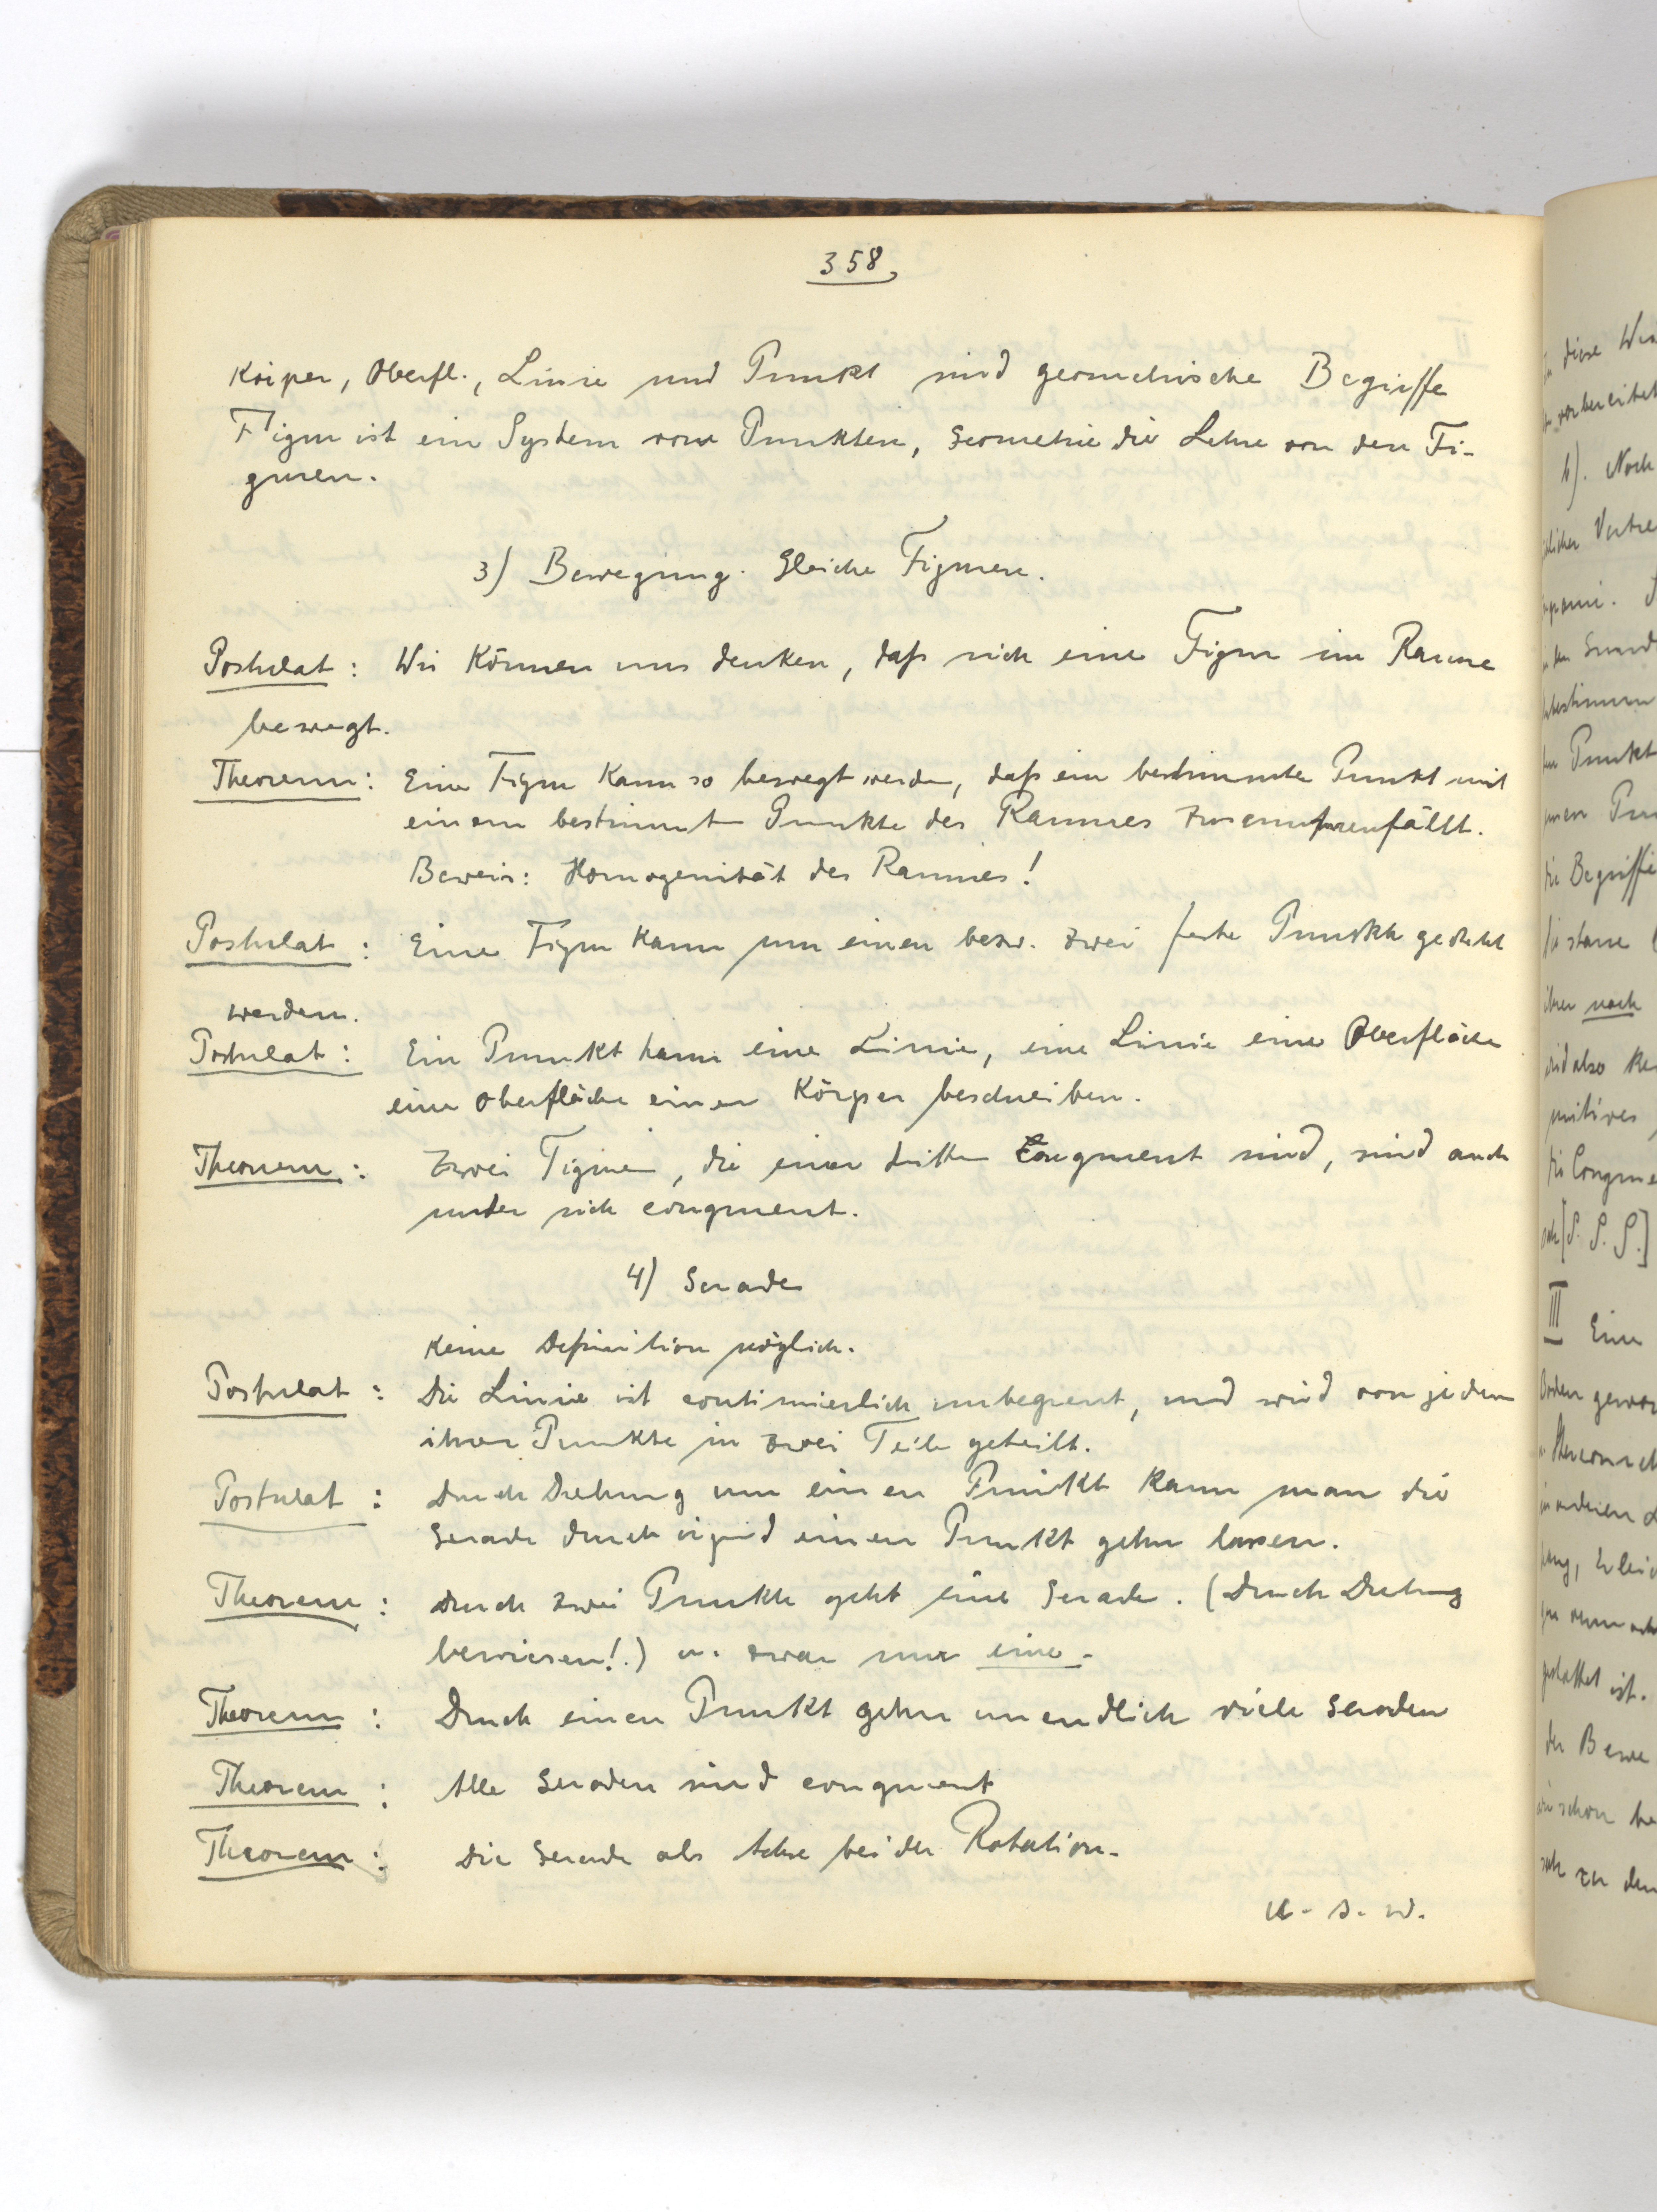 358,
Körper, Oberfl., Linie und Punkt sind geometrische Begriffe
Figur ist ein System von Punkten, Geometrie die Lehre von den Fi-
guren.
3) Bewegung. Gleiche Figuren.
Postulat: Wir können uns denken, daß sich eine Figur im Raume
bewegt.
Theorem: Eine Figur kann so bewegt werden, daß ein bestimmter Punkt mit
einem bestimmt Punkte des Raumes zusammenfällt.
Beweis: Homogenität des Raumes!
Postulat: Eine Figur kann um einen bezw. zwei feste Punkte gedreht
werden.
Postulat: Ein Punkt kann eine Linie, eine Linie eine Oberfläche
eine Oberfläche einen Körper beschreiben.
Theorem: Zwei Figuren, die einer dritten congruent sind, sind auch
unter sich congruent.
4) Gerade
Keine Definition möglich.
Postulat: Die Linie ist continuierlich unbegrent, und wird von jedem
ihrer Punkte in zwei Teile geteilt.
Postulat: Durch Drehung um einen Punkt kann man die
Gerade durch irgend einen Punkt gehn lassen.
Theorem: Durch zwei Punkte geht eine Gerade. (Durch Drehung
bewiesen!.) u. zwar nur eine.
Theorem: Durch einen Punkt gehn unendlich viele Geraden
Theorem: Alle Geraden sind congruent
Theorem: Die Gerade als Achse bei der Rotation.
u. s. w.
diese
vorbereitet
b). Noch
Punkt
die Begriffe
ihrer noch
[S. S. S.]
III Eine
ist.
schon
zu den